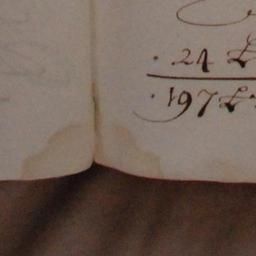 · 24 ₤
· 197 ₤